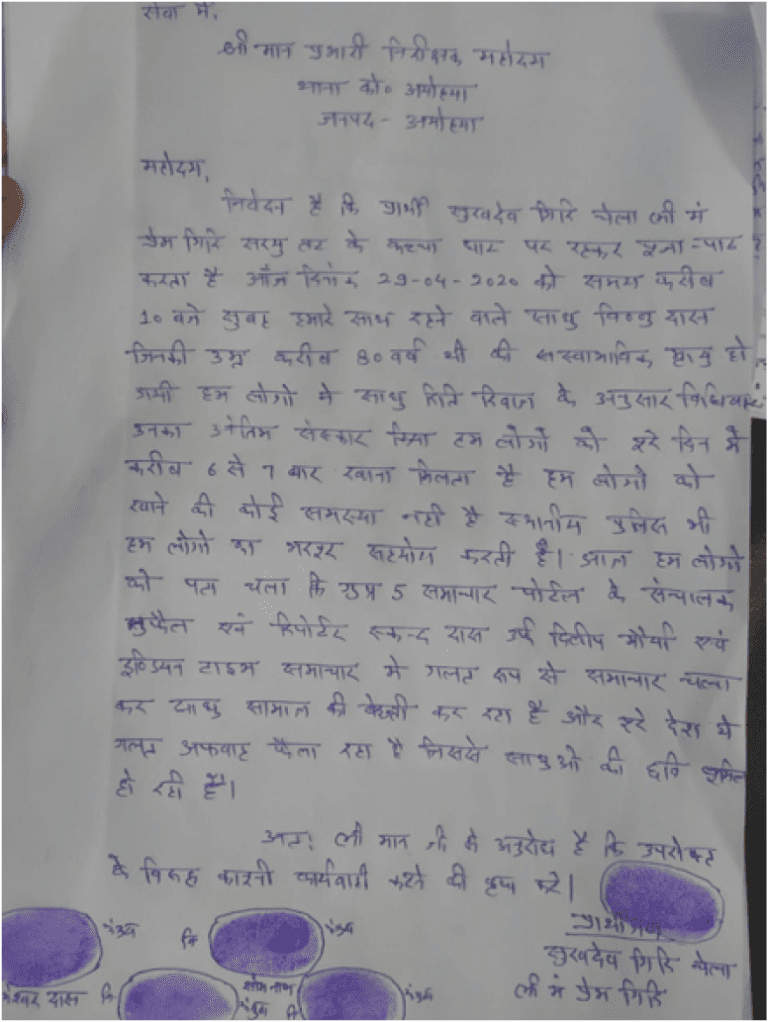 सेवा में,
श्री मान प्रभारी निरीक्षक महोदय
थाना को० अयोध्या
जनपद - अयोध्या
महोदय,
निवेदन है कि प्रार्थी सुखदेव गिरि चेला श्री मं
प्रेम गिरि सरयु तट के कच्चा घाट पर रहकर पूजा-पाठ
करता है आज दिनांक 29-04-2020 को समय करीब
10 बजे सुबह हमारे साथ रहने वाले साधु विष्णु दास
जिनकी उम्र करीब 80 वर्ष थी की मृत्यु हो
गयी हम लोगो ने साधु रिति रिवाज के अनुसार
उनका अंतिम संस्कार किया हम लोगो को पूरे दिन में
करीब 6 से 7 बार खाना मिलता है हम लोगो को
खाने की कोई समस्या नही है स्थानीय पुलिस भी
हम लोगो का भरपूर सहयोग करती है। आज हम लोगो
को पता चला कि 5 समाचार पोर्टल के संचालक
एवं रिपोर्टर स्कन्द दास उर्फ दिलीप मौर्या एवं
इण्डियन टाइम समाचार मे गलत रूप से समाचार चला
कर साधु की कर रहा है और पूरे देश मे
गलत अफवाह फैला रहा है जिससे साधुओ की छवि धूमिल
हो रही है।
अतः श्री मान जी से अनुरोध है कि उपरोक्त
के विरुद्ध कानूनी कार्यवाही करने की कृपा करे।
प्रार्थीगण
सुखदेव गिरि चेला
श्री मं प्रेम गिरि
दास नि